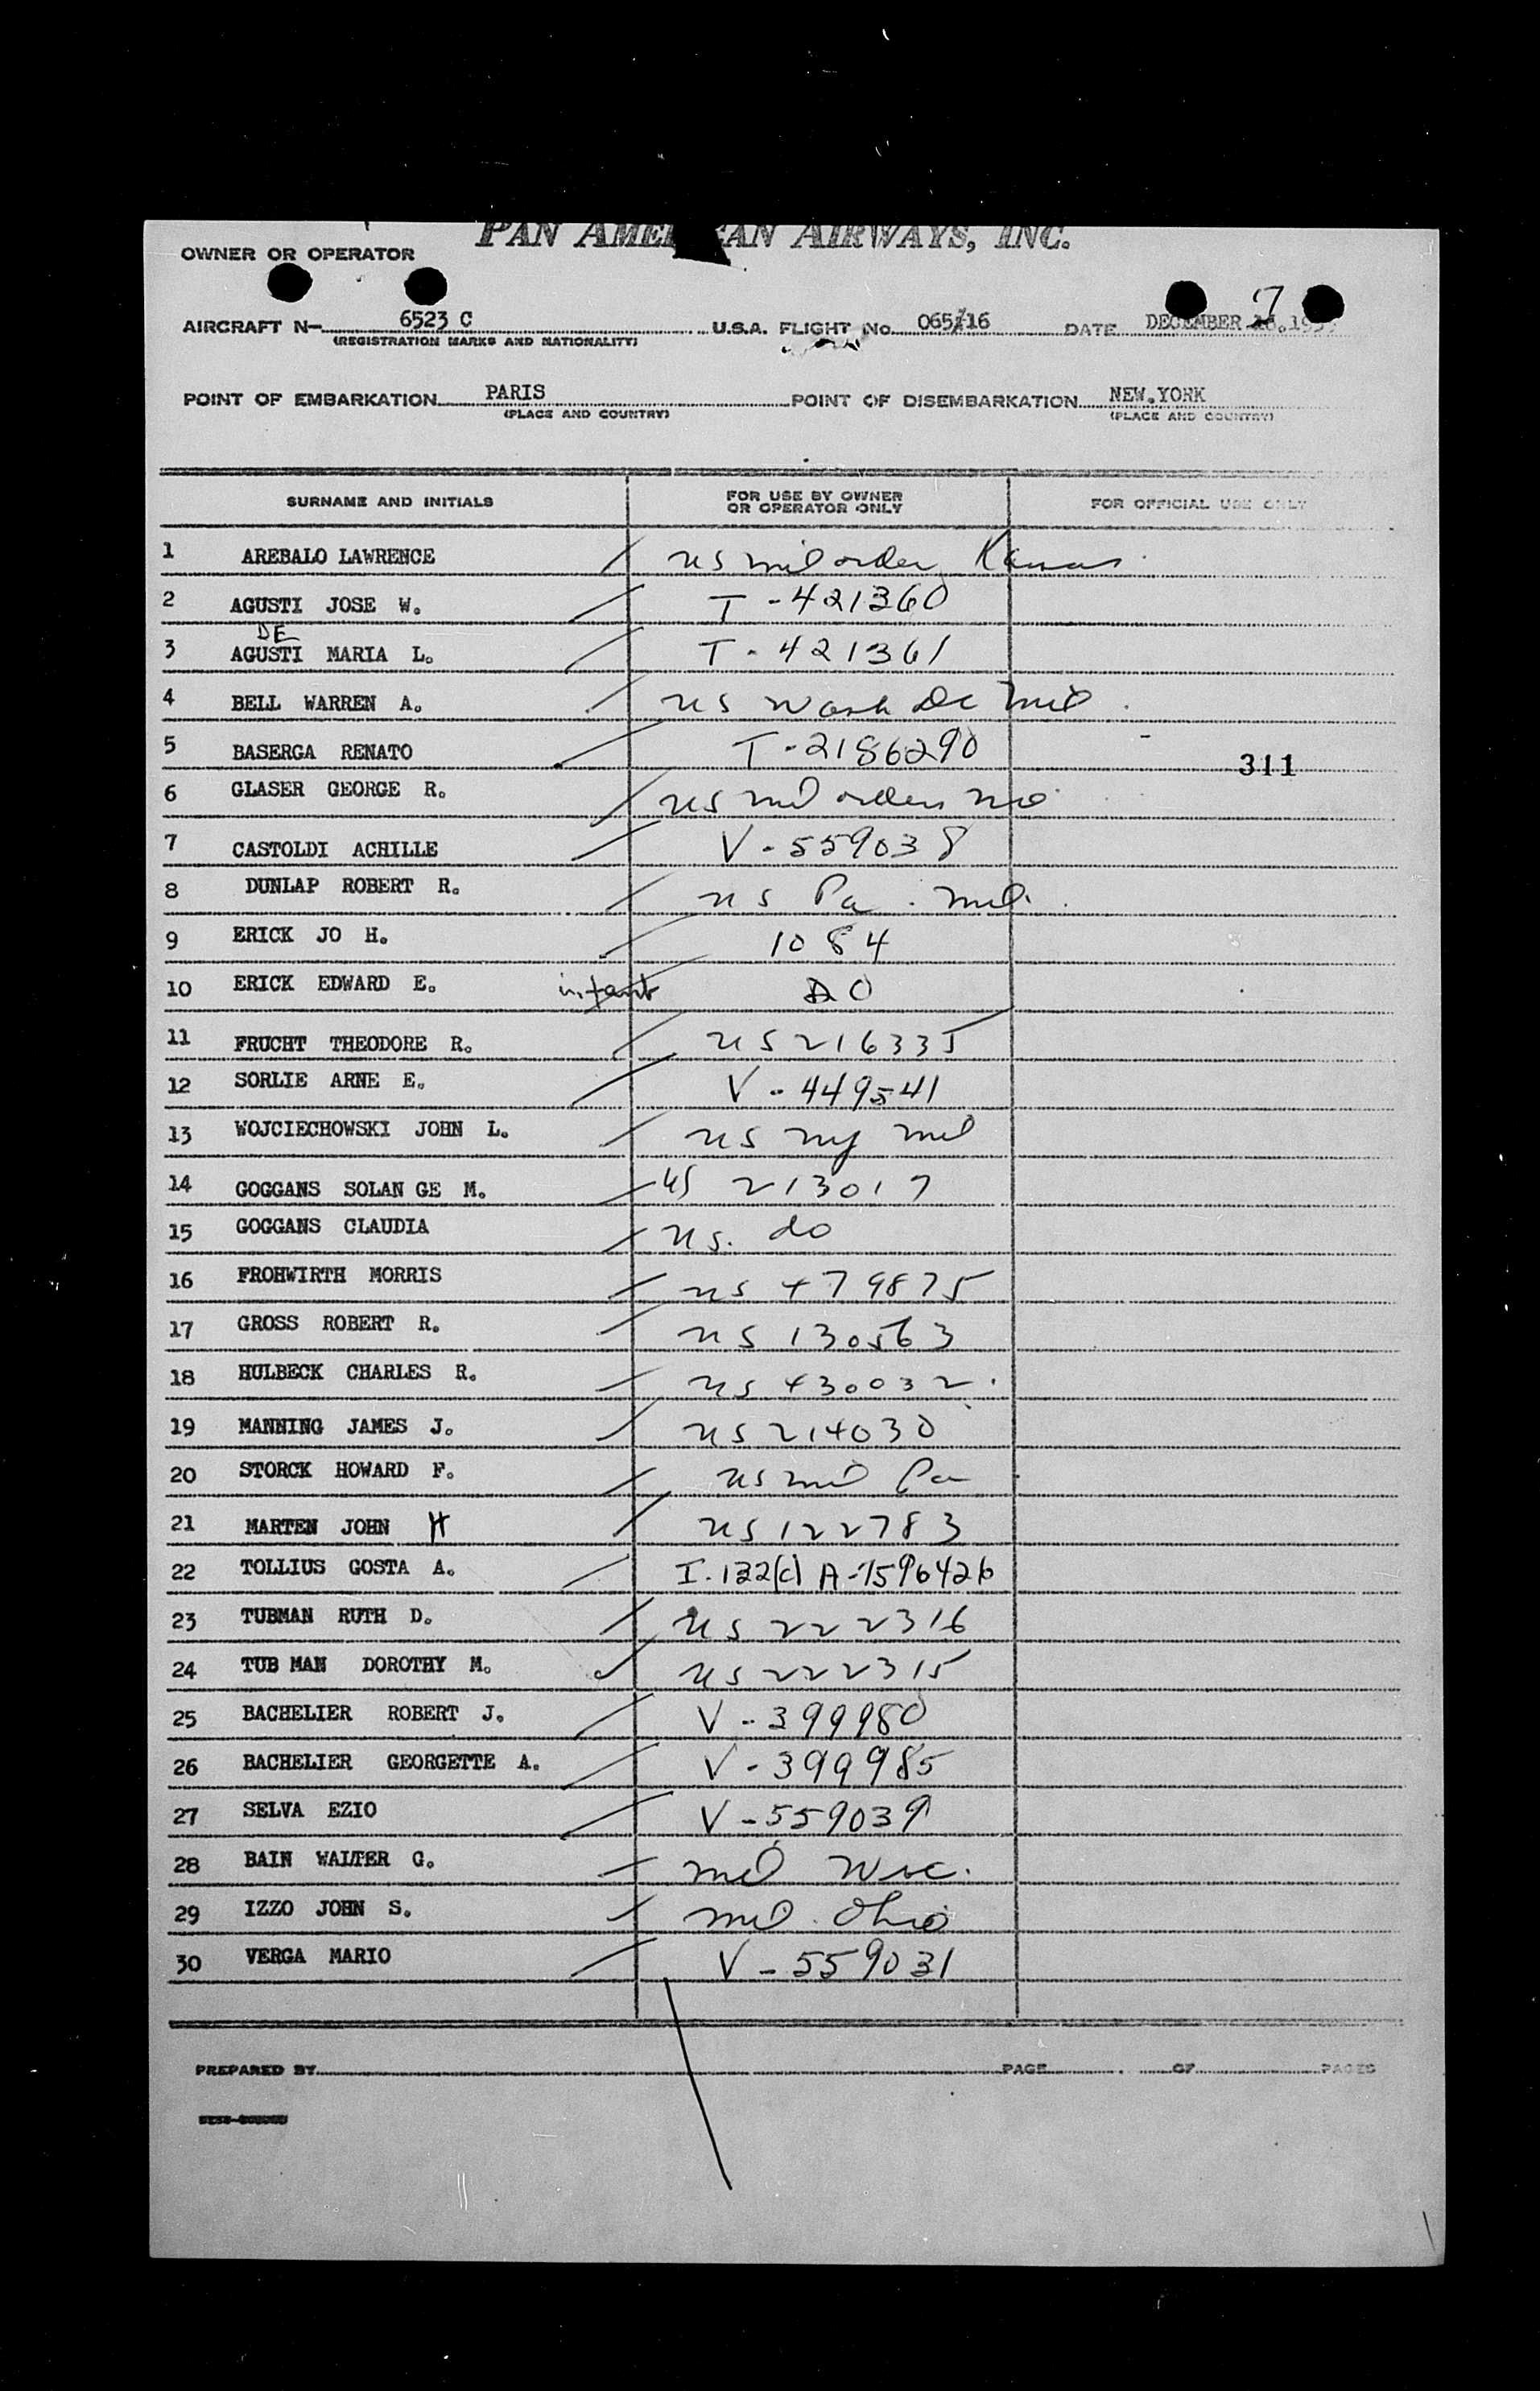 PAN AMERICAN AIRWAYS, INC.
OWNER OR OPERATOR
7
AIRCRAFT N- 6523 C U.S.A. FLIGHT No. 065/16 DATE DECEMBER
(REGISTRATION MARKS AND NATIONALITY)
POINT OF EMBARKATION PARIS POINT OF DISEMBARKATION NEW.YORK
(PLACE AND COUNTRY) (PLACE AND COUNTRY)
SURNAME AND INITIALS FOR USE BY OWNER OR OPERATOR ONLY FOR OFFICIAL USE ONLY
1 AREBALO LAWRENCE US mil order Kansas
2 AGUSTI JOSE W. T-421360
DE
3 AGUSTI MARIA L. T-421361
4 BELL WARREN A. US Wash DC Mil
5 BASERGA RENATO T-2186290
311
6 GLASER GEORGE R. US mil orders mo
7 CASTOLDI ACHILLE V-559038
8 DUNLAP ROBERT R. US Pa. mil.
9 ERICK JO H. 1084
10 ERICK EDWARD E. infant DO
11 FRUCHT THEODORE R. US 216335
12 SORLIE ARNE E. V-449541
13 WOJCIECHOWSKI JOHN L. US ny mil
14 GOGGANS SOLAN GE M. US 213017
15 GOGGANS CLAUDIA US. do
16 FROHWIRTH MORRIS US 479875
17 GROSS ROBERT R. US 130563
18 HULBECK CHARLES R. US 430032
19 MANNING JAMES J. US 214030
20 STORCK HOWARD F. US mil Pa
21 MARTEN JOHN H US 122783
22 TOLLIUS GOSTA A. I-132(c) A-7596426
23 TUBMAN RUTH D. US 222316
24 TUB MAN DOROTHY M. US 222315
25 BACHELIER ROBERT J. V-399980
26 BACHELIER GEORGETTE A. V-399985
27 SELVA EZIO V-559039
28 BAIN WALTER G. mil Wisc.
29 IZZO JOHN S. mil. Ohio
30 VERGA MARIO V-559031
PREPARED BY PAGE OF PAGES